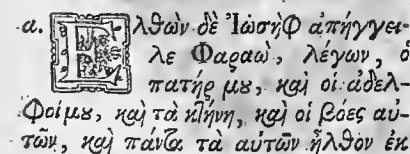 α. Ἐλθὼν δὲ Ἰωσὴφ ἀπήγγει-
λε Φαραὼ, λέγων, ὁ
πατήρ μȣ, καὶ οἱ ἀδελ-
φοίμȣ, καὶ τὰ κτήνη, καὶ οἱ βόες αὐ-
τῶν, καὶ πάντα τὰ αὐτῶν ἦλθον ἐκ